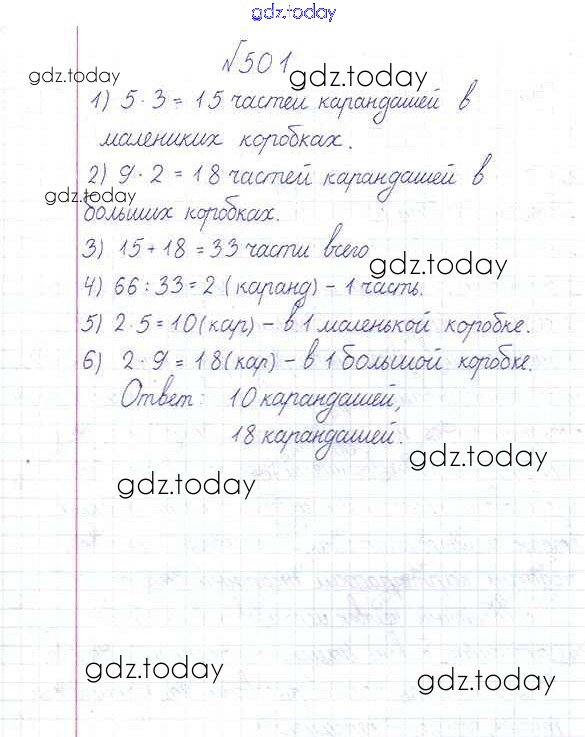 gdz.today
№501
gdz.today
gdz.today
1) 5·3=15 частей карандашей в
малениких коробках.
2) 9·2=18 частей карандашей в
gdz.today
больших коробках.
3) 15+18=33 части всего
gdz.today
4) 66:33=2 (каранд) – 1 часть.
5) 2·5=10(кар) – в 1 маленькой коробке.
6) 2·9=18(кар) – в 1 большой коробке.
Ответ: 10 карандашей,
18 карандашей.
gdz.today
gdz.today
gdz.today
gdz.today